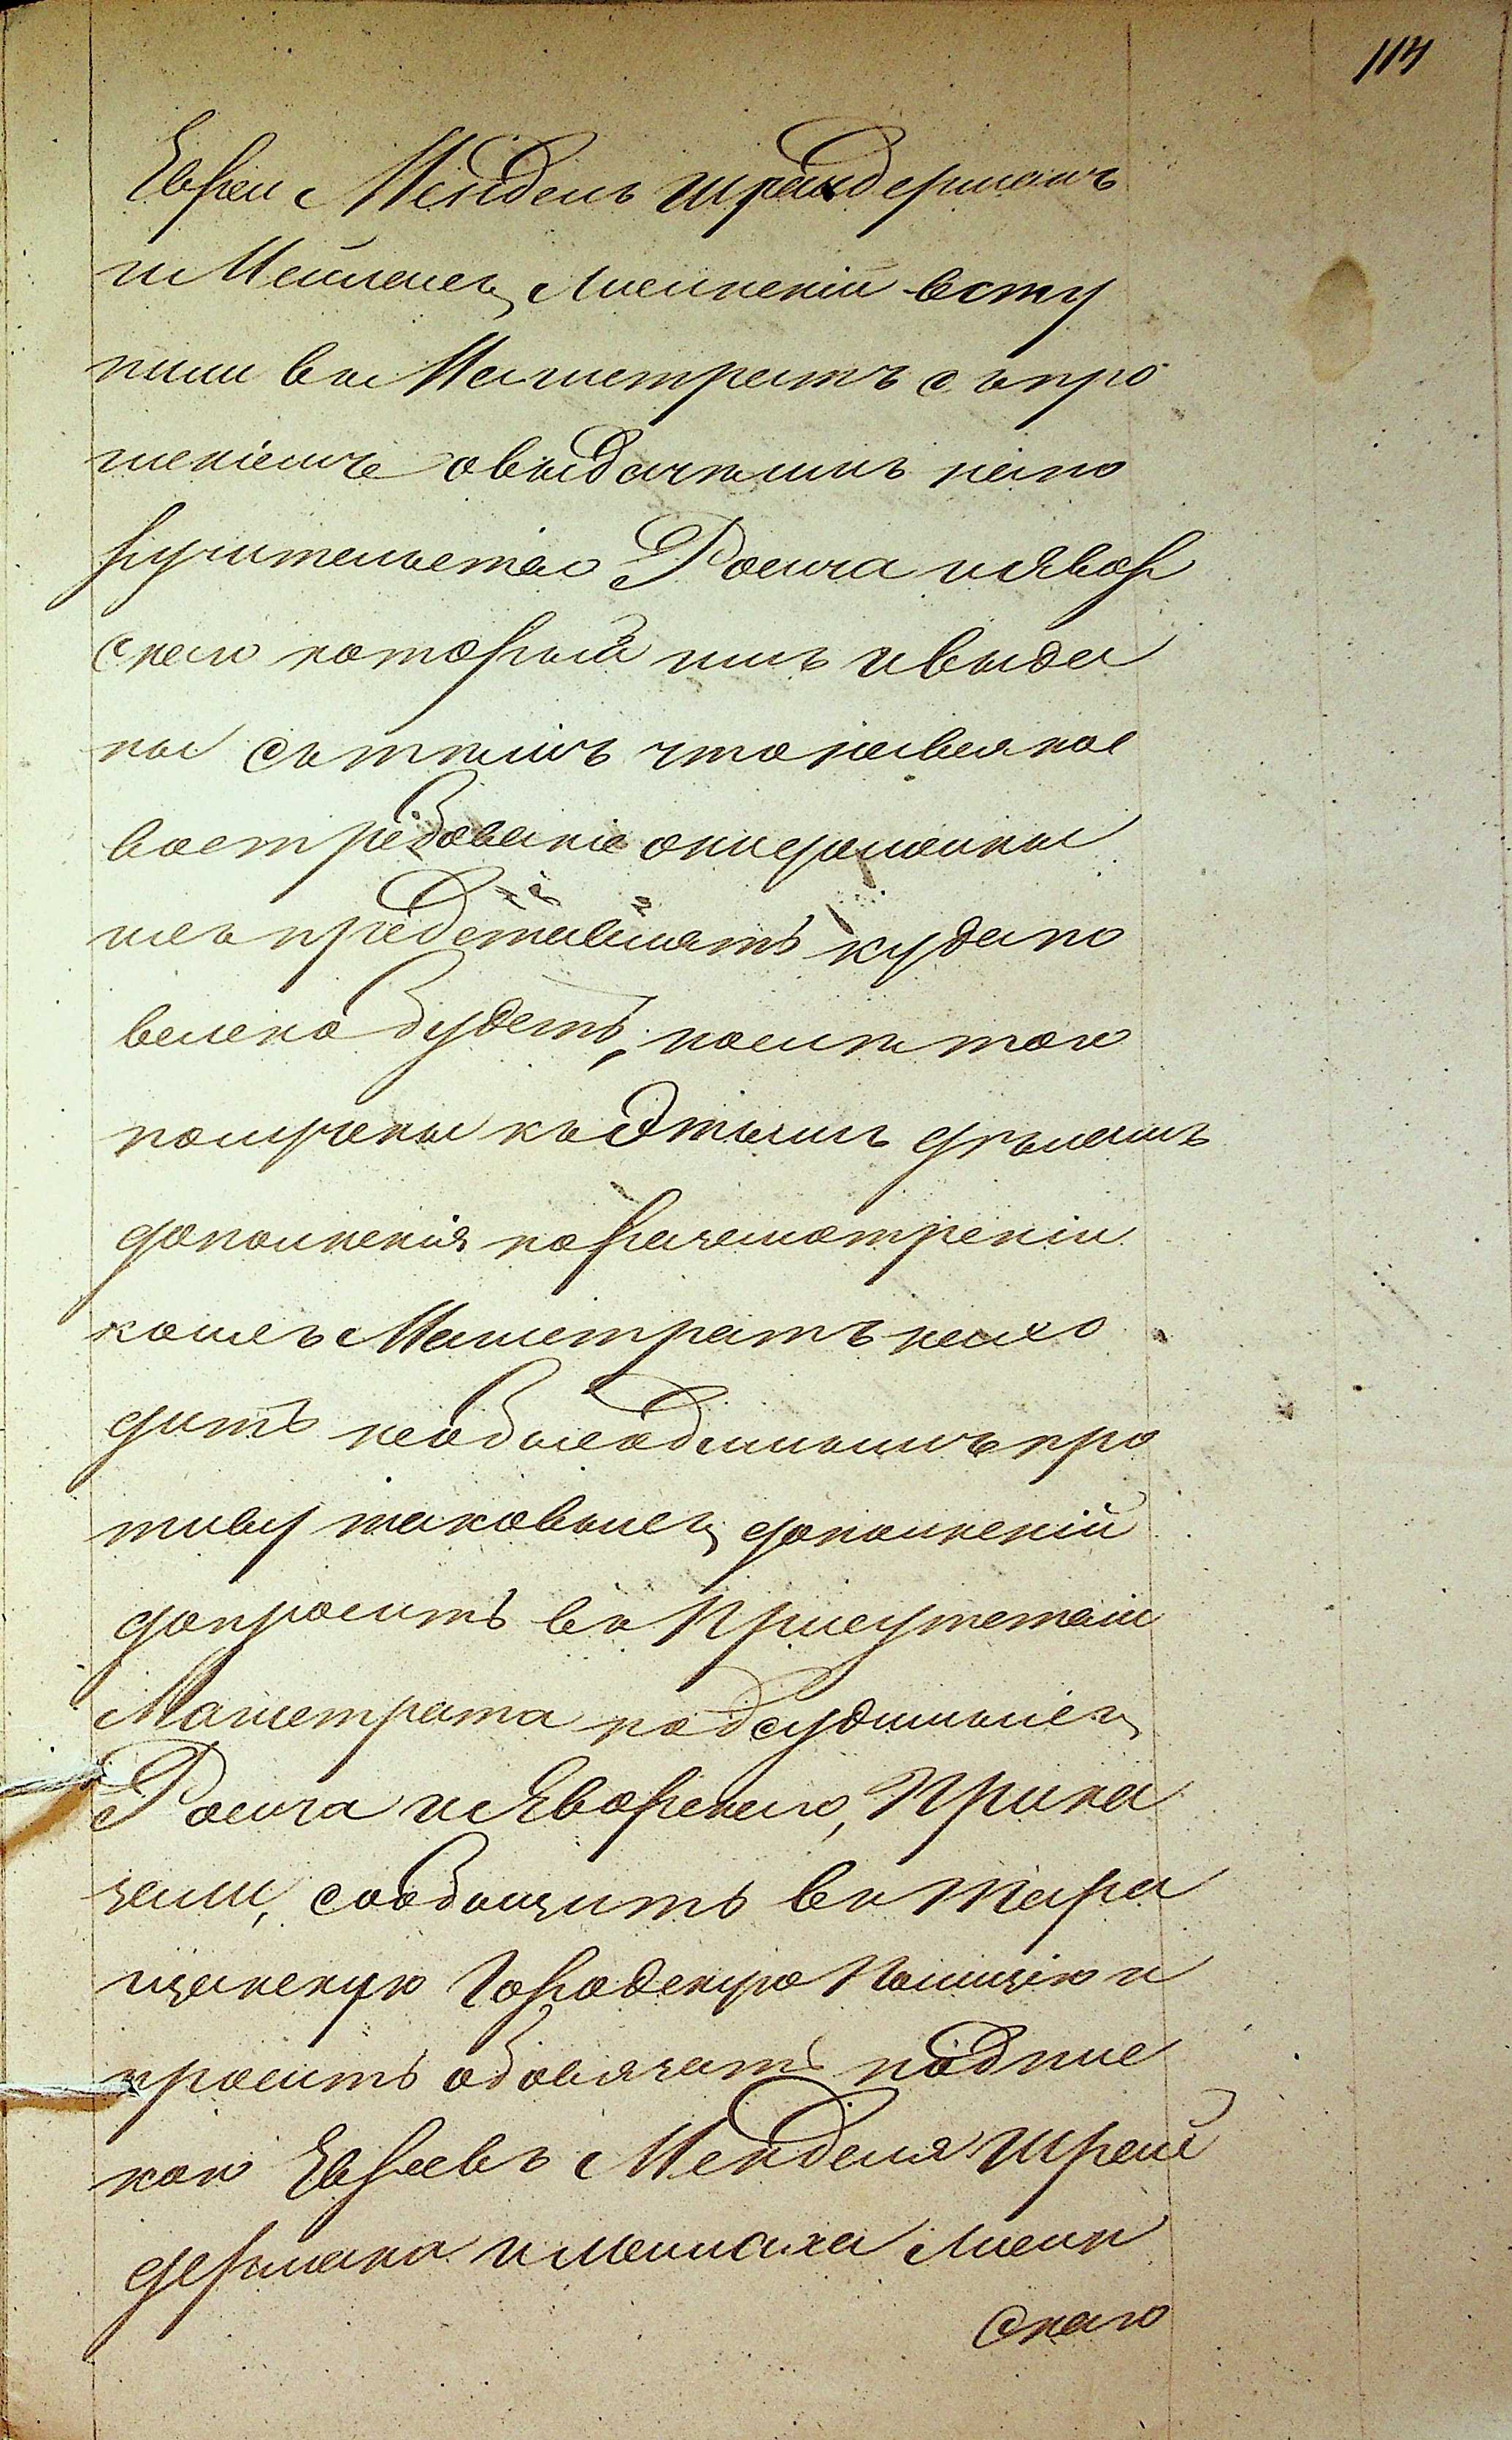 114
Евреи Мендель Шрайдерманъ
и Мейлахъ Липскій всту
пили въ Магистратъ съ про
шеніемъ о выдачѣ имъ на по
ручительство Роыча и Явор
скаго который имъ и выда
ны съ тѣмъ что на всякое
востребованіе они должны
ихъ представлять куда по
велено будетъ, послѣ того
получены къ этимъ дѣламъ
дополненія по разсмотреніи
коихъ Магистратъ нахо
дитъ необходимымъ про
тиву таковыхъ дополненій
допросить въ Присутствіи
Магистрата подсудимыхъ
Роыча и Яворскаго, Прика
зали, сообщить въ Тара
щанскую Городскую Полицію и
просить обовязать подпис
кою Евреевъ Менделя Шрай
дермана и Мейлаха Липск
скаго